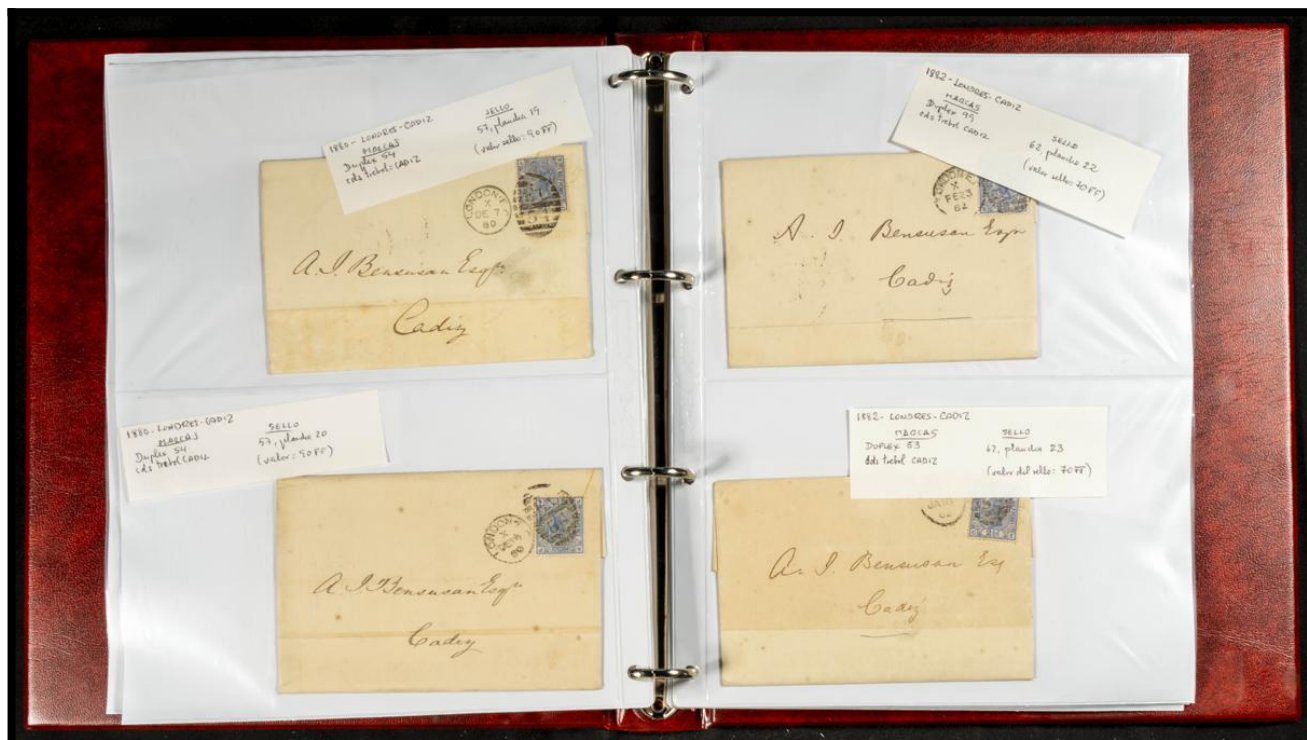 1880 - LONDRES-CADIZ
MARCAS
Duplex 54
cds trebol = CADIZ
SELLO
57, plancha 19
(valor sello: 90FF)
LONDON E.C
X
DE 7
80
A. I. Bensusan Esqr.
Cadiz
1882 - LONDRES - CADIZ
MARCAS
Duplex 99
cds trebol CADIZ
SELLO
62, plancha 22
(valor sello: 70FF)
LONDON E.C
X
FE 23
82
A. I. Bensusan Esqr
Cadiz
1880 - LONDRES - CADIZ
MARCAS
Duplex 54
cds trebol CADIZ
SELLO
57, plancha 20
(valor: 90FF)
LONDON E.C
X
80
A. I. Bensusan Esqr
Cadiz
1882 - LONDRES - CADIZ
MARCAS
DUPLEX 63
cds trebol CADIZ
SELLO
62, plancha 23
(valor del sello: 70FF)
A. I. Bensusan Esq
Cadiz